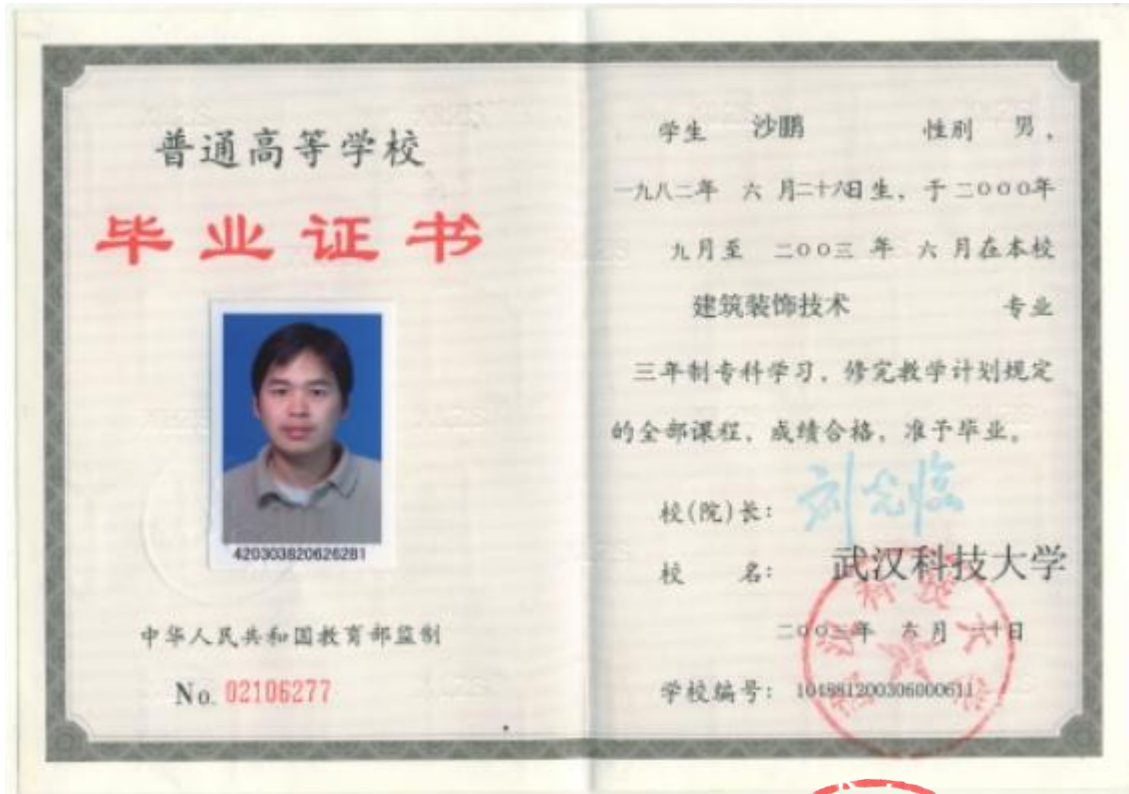 普通高等学校
毕业证书
420303820626281
中华人民共和国教育部监制
No. 02106277
学生 沙鹏 性别 男,
一九八二年 六 月二十六日生, 于二〇〇〇年
九月至 二〇〇三 年 六 月在本校
建筑装饰技术 专业
三年制专科学习, 修完教学计划规定
的全部课程, 成绩合格, 准予毕业。
校(院)长: 刘光临
校 名: 武汉科技大学
二〇〇三年 六月 十日
学校编号: 104881200306000611
武汉科技大学